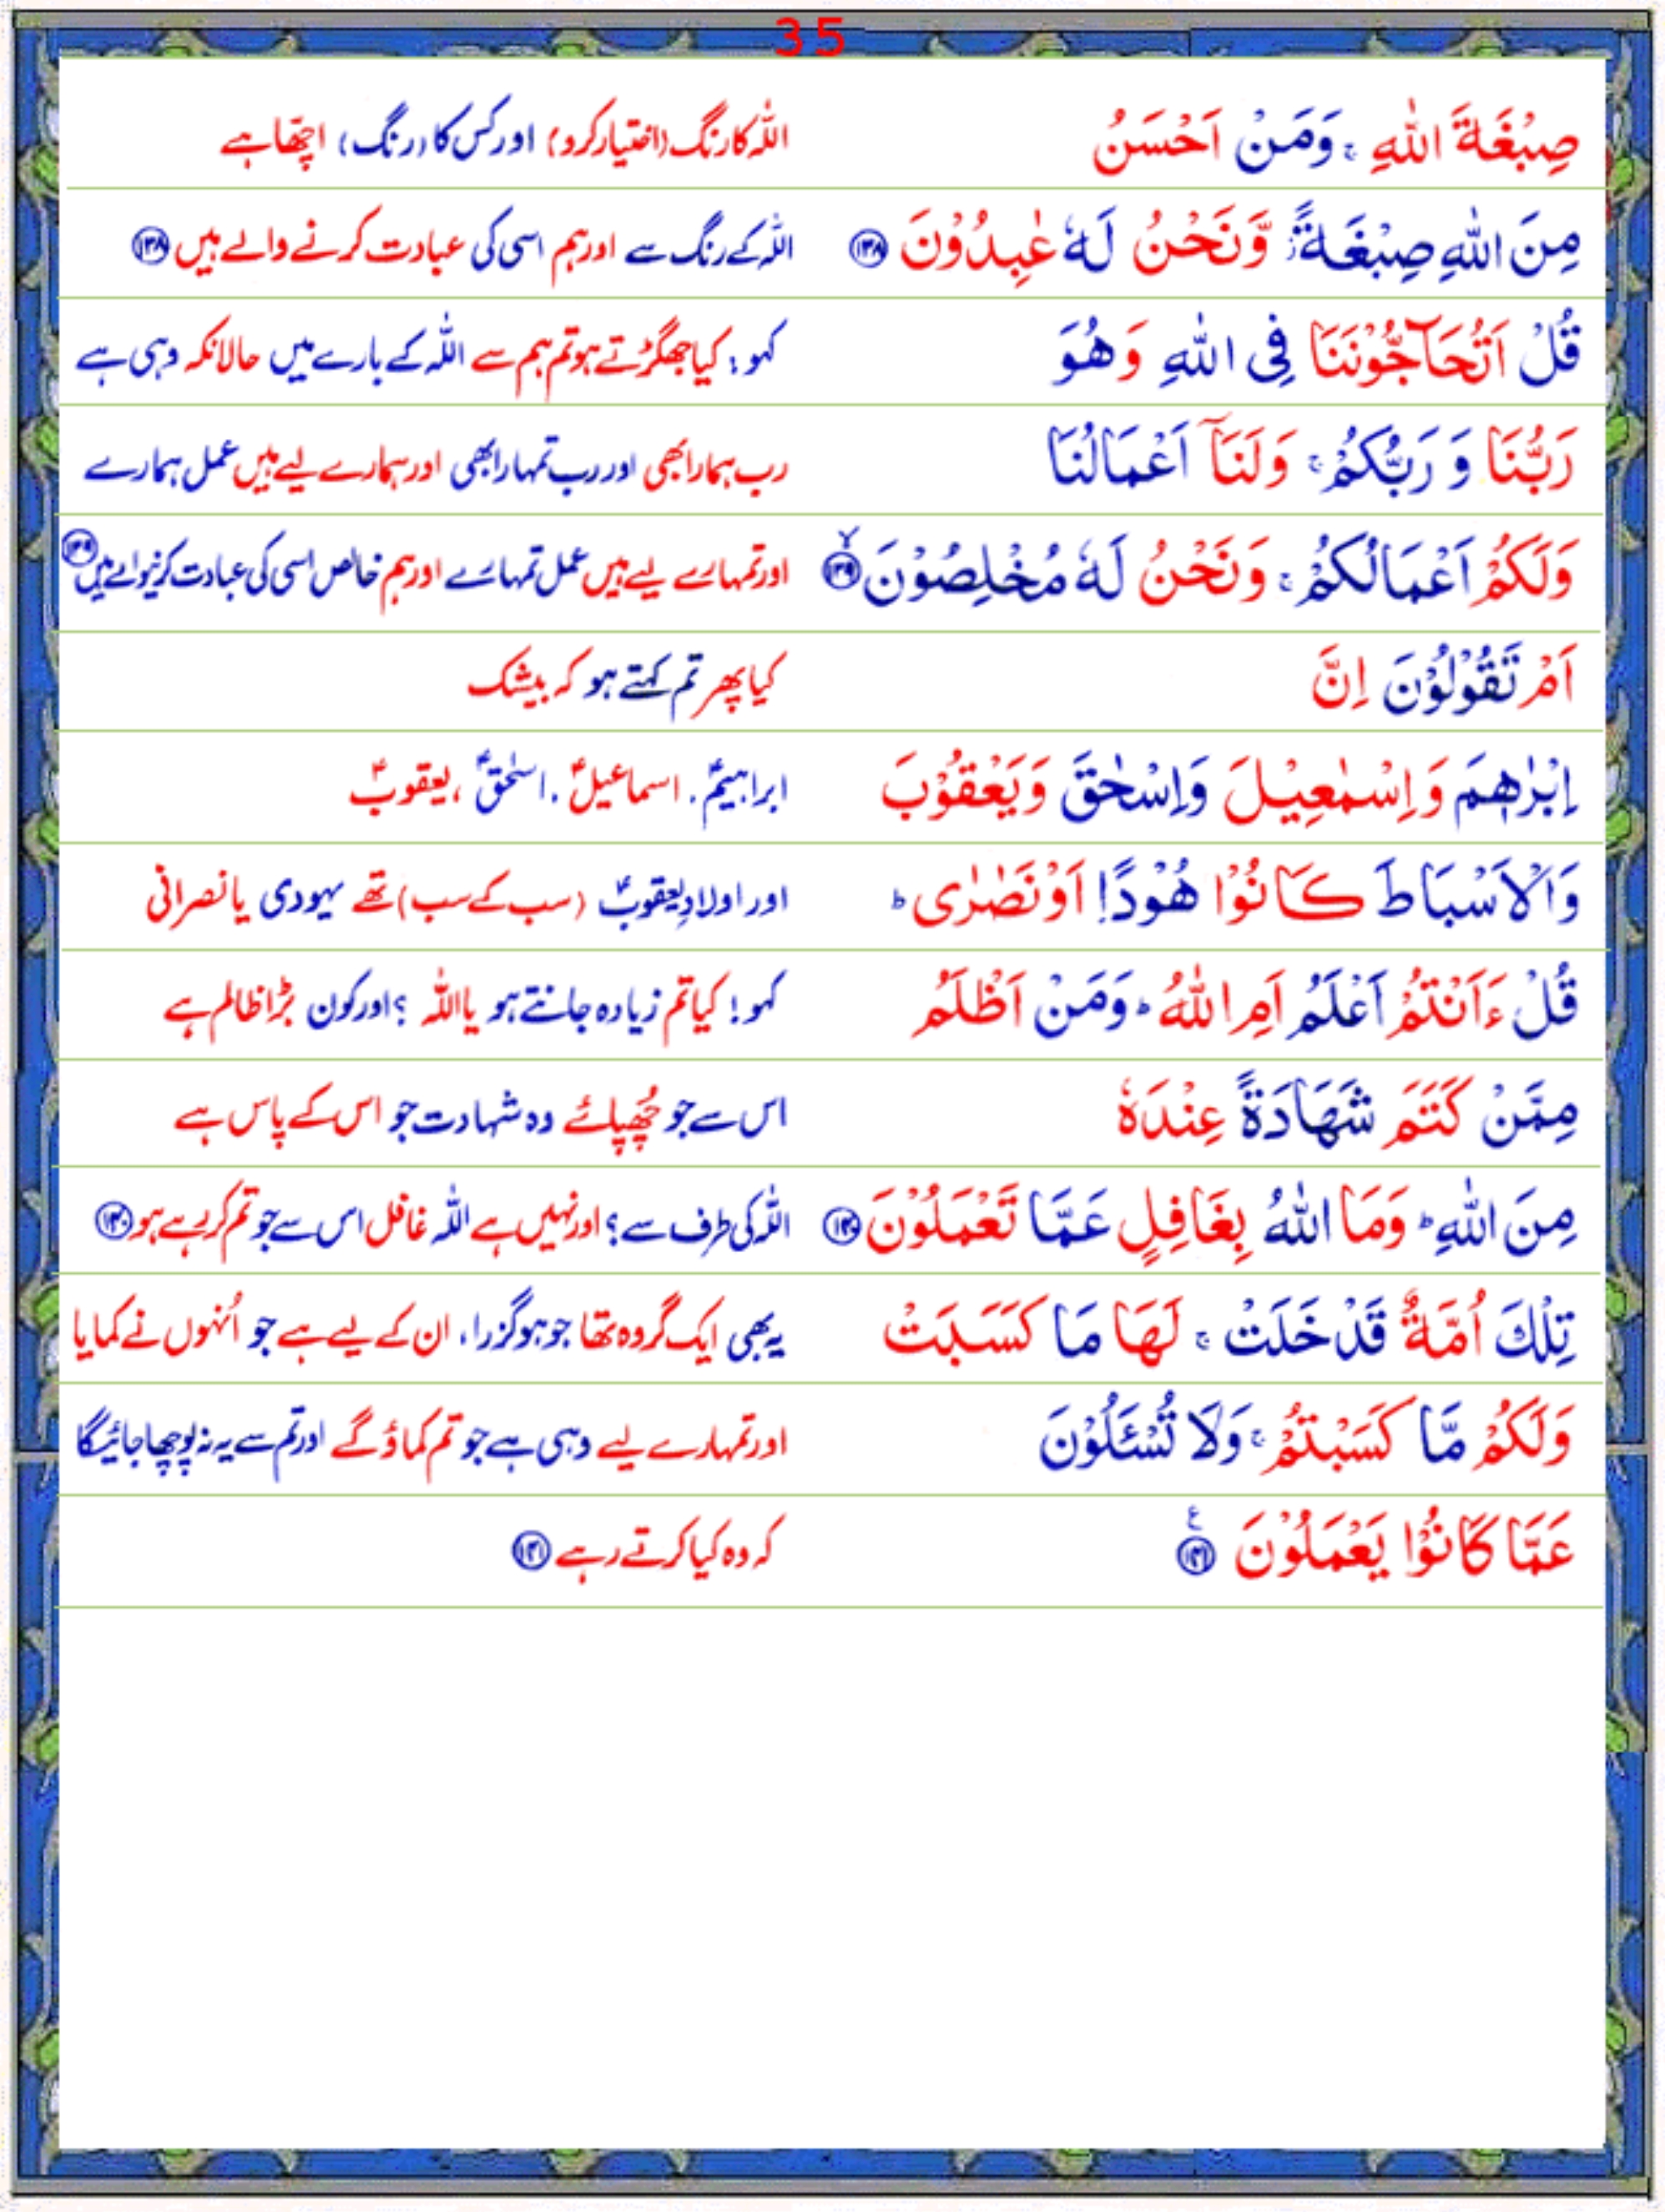 35
صِبْغَةَ اللّٰهِ ۚ وَمَنْ اَحْسَنُ
اللہ کا رنگ (اختیار کرو) اور کس کا (رنگ) اچھا ہے
مِنَ اللّٰهِ صِبْغَةً ؗ وَّنَحْنُ لَهٗ عٰبِدُوْنَ ﴿۱۳۸﴾
اللہ کے رنگ سے اور ہم اسی کی عبادت کرنے والے ہیں ﴿۱۳۸﴾
قُلْ اَتُحَآجُّوْنَنَا فِى اللّٰهِ وَهُوَ
کہو: کیا جھگڑتے ہو تم ہم سے اللہ کے بارے میں حالانکہ وہی ہے
رَبُّنَا وَ رَبُّكُمْ ۚ وَلَنَآ اَعْمَالُنَا
رب ہمارا بھی اور رب تمہارا بھی اور ہمارے لیے ہیں عمل ہمارے
وَلَكُمْ اَعْمَالُكُمْ ۚ وَنَحْنُ لَهٗ مُخْلِصُوْنَ ۙ﴿۱۳۹﴾
اور تمہارے لیے ہیں عمل تمہارے اور ہم خالص اسی کی عبادت کرنیوالے ہیں ﴿۱۳۹﴾
اَمْ تَقُوْلُوْنَ اِنَّ
کیا پھر تم کہتے ہو کہ بیشک
اِبْرٰهٖمَ وَاِسْمٰعِيْلَ وَاِسْحٰقَ وَيَعْقُوْبَ
ابراہیمؑ، اسماعیلؑ، اسحٰقؑ، یعقوبؑ
وَالْاَسْبَاطَ كَانُوْا هُوْدًا اَوْ نَصٰرٰى ؕ
اور اولادِ یعقوبؑ (سب کے سب) تھے یہودی یا نصرانی
قُلْ ءَاَنْتُمْ اَعْلَمُ اَمِ اللّٰهُ ؕ وَمَنْ اَظْلَمُ
کہو! کیا تم زیادہ جانتے ہو یا اللہ؟ اور کون بڑا ظالم ہے
مِمَّنْ كَتَمَ شَهَادَةً عِنْدَهٗ
اس سے جو چُھپائے وہ شہادت جو اس کے پاس ہے
مِنَ اللّٰهِ ؕ وَمَا اللّٰهُ بِغَافِلٍ عَمَّا تَعْمَلُوْنَ ﴿۱۴۰﴾
اللہ کی طرف سے؟ اور نہیں ہے اللہ غافل اس سے جو تم کر رہے ہو ﴿۱۴۰﴾
تِلْكَ اُمَّةٌ قَدْ خَلَتْ ۚ لَهَا مَا كَسَبَتْ
یہ بھی ایک گروہ تھا جو ہو گزرا، ان کے لیے ہے جو اُنہوں نے کمایا
وَلَكُمْ مَّا كَسَبْتُمْ ۚ وَلَا تُسْـَٔلُوْنَ
اور تمہارے لیے وہی ہے جو تم کماؤ گے اور تم سے یہ نہ پوچھا جائیگا
عَمَّا كَانُوْا يَعْمَلُوْنَ ﴿۱۴۱﴾ ع
کہ وہ کیا کرتے رہے ﴿۱۴۱﴾